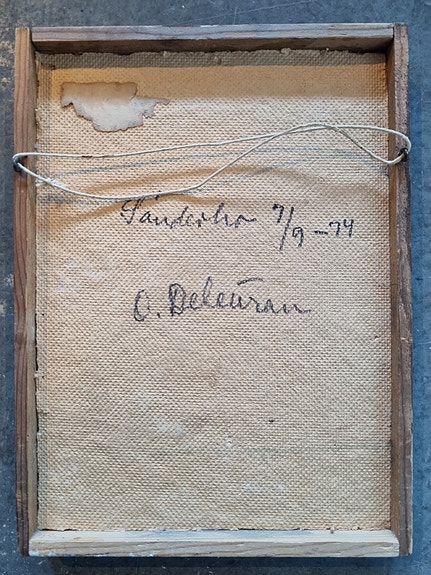 Sønderho 7/9-74
O. Deleuran